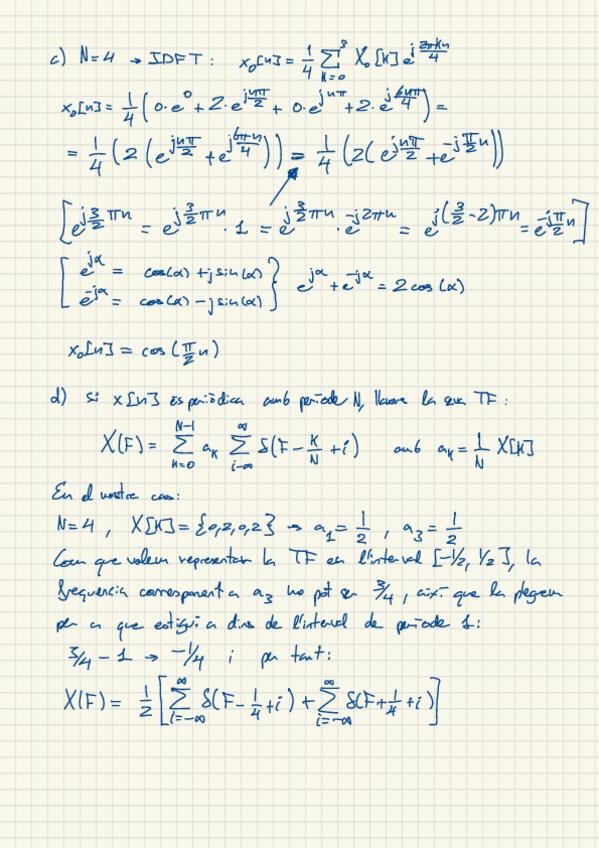 c) N=4 → IDFT: x₀[n] = 1/4 Σ_{k=0}^{3} X₀[k] e^{j 2πkn/4}
x₀[n] = 1/4 (0·e⁰ + 2·e^{j nπ/2} + 0·e^{jnπ} + 2·e^{j 6πn/4}) =
= 1/4 (2(e^{j nπ/2} + e^{j 6πn/4})) = 1/4 (2(e^{j nπ/2} + e^{-j π/2 n}))
[e^{j 3/2 πn} = e^{j 3/2 πn}·1 = e^{j 3/2 πn}·e^{-j2πn} = e^{j(3/2-2)πn} = e^{-j π/2 n}]
[e^{jα} = cos(α)+j sin(α)
e^{-jα} = cos(α)-j sin(α)} e^{jα}+e^{-jα} = 2cos(α)
x₀[n] = cos(π/2 n)
d) Si x[n] és periòdica amb període N, llavors la seva TF:
X(F) = Σ_{k=0}^{N-1} a_k Σ_{i-∞}^{∞} δ(F - k/N + i) amb a_k = 1/N X[k]
En el nostre cas:
N=4, X[k]={0,2,0,2} → a₁=1/2, a₃=1/2
Com que volem representar la TF en l'interval [-1/2, 1/2], la
freqüència corresponent a a₃ no pot ser 3/4, així que la pleguem
per a que estigui a dins de l'interval de període 1:
3/4 - 1 → -1/4 i per tant:
X(F) = 1/2 [Σ_{i=-∞}^{∞} δ(F - 1/4 + i) + Σ_{i=-∞}^{∞} δ(F + 1/4 + i)]